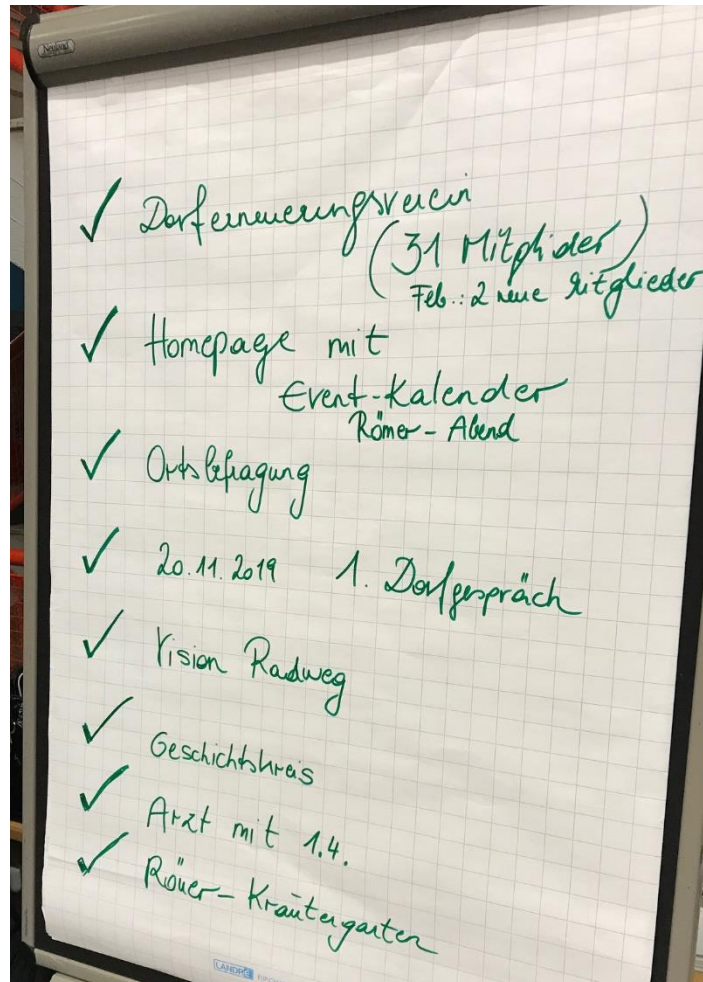 Neuland
✓ Dorferneuerungsverein
(31 Mitglider)
Feb.: 2 neue Mitglieder
✓ Homepage mit
Event-Kalender
Römer-Abend
✓ Ortsbefragung
✓ 20.11.2019 1. Dorfgespräch
✓ Vision Radweg
✓ Geschichtskreis
✓ Arzt mit 1.4.
✓ Römer-Kräutergarten
LANDRÉ